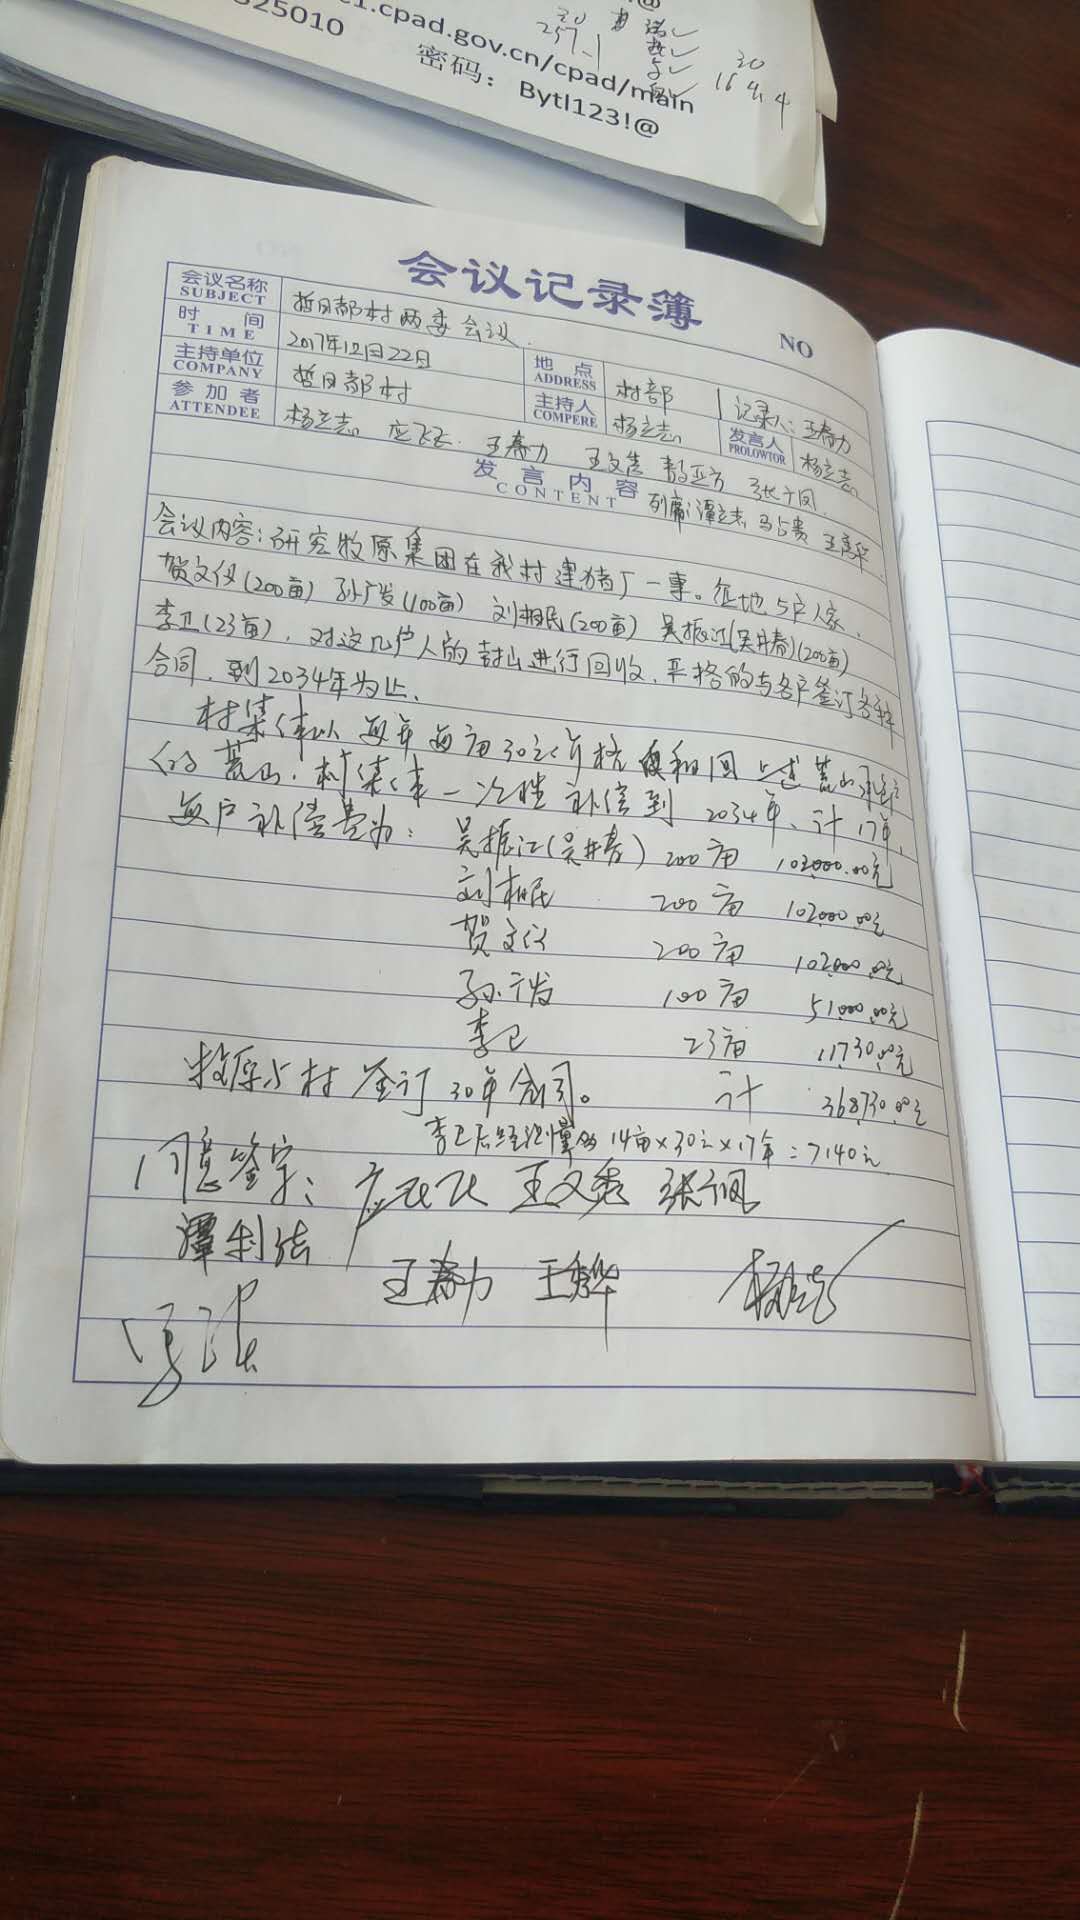 c1.cpad.gov.cn/cpad/main
325010
密码： Bytl123!@
20
257-1
30
16
会议记录簿
NO
会议名称 SUBJECT 哲日都村两委会议.
时间 TIME 2017年12月22日 地点 ADDRESS 村部 记录人：王春力
主持单位 COMPANY 哲日都村 主持人 COMPERE 杨立志 发言人 PROLOWTOR 杨立志
参加者 ATTENDEE 杨立志 应飞飞 王春力 王文
发言内容 CONTENT 列席：谭 马占贵
会议内容：研究牧原集团在我村建猪厂一事。征地5户人家，
贺文仪(200亩) 孙广发(100亩) 刘相民(200亩) 吴振江(吴井春)(200亩)
李卫(23亩)，对这几户人的荒山进行回收，严格的与各户签订各种
合同，到2034年为止.
村集体以每年每亩30元价格 回上述荒山承包
的荒山，村集体一次性补偿到2034年、计17年,
每户补偿费为： 吴振江(吴井春) 200亩 102000.00元
刘相民 200亩 102000.00元
贺文仪 200亩 102000.00元
孙广发 100亩 51000.00元
李卫 23亩 11730.00元
牧原与村签订30年合同。 计 368730.00元
李卫 14亩×30元×17年=7140元
同意签字： 应飞飞 王文 张
谭利
王春力 王 杨立志